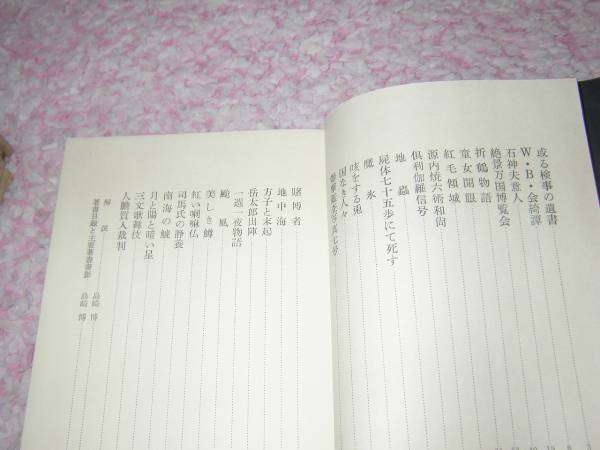 或る検事の遺書
W・B・会綺譚
石神夫意人
絶景万国博覧会
折鶴物語
童女開眼
紅毛傾城
源内焼六術和尚
倶利伽羅信号
地蟲
屍体七十五歩にて死す
魔氷
咳をする兎
国なき人々
賭博者
地中海
方子と末起
岳太郎出陣
一週一夜物語
颱風
美しき鱒
紅い喇嘛仏
司馬氏の静養
南海の蛾
月と陽と暗い星
三文歌舞伎
人膽質入裁判
解説 島崎博
著書目録と主要著書書影 島崎博